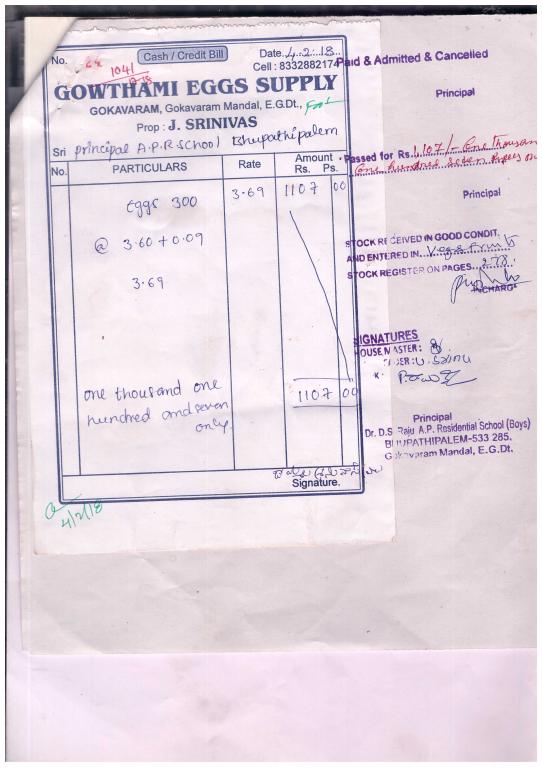 No. 1041
17-18
Cash / Credit Bill
Date 4.2.18
Cell : 8332882174
GOWTHAMI EGGS SUPPLY
GOKAVARAM, Gokavaram Mandal, E.G.Dt.,
Prop : J. SRINIVAS
Sri principal A.P.R School Bhupathipalem
No. PARTICULARS Rate Amount
Rs. Ps.
Eggs 300 3.69 1107 00
@ 3.60 + 0.09
3.69
one thousand one 1107 00
hundred and seven
only
Signature.
4/2/18
Paid & Admitted & Cancelled
Principal
Passed for Rs. 1107/- One Thousand
One hundred Seven Rupees
Principal
STOCK RECEIVED IN GOOD CONDIT.
AND ENTERED IN
STOCK REGISTER ON PAGES 278
INCHARGE
SIGNATURES
HOUSE MASTER :
Principal
Dr. D.S Raju A.P. Residential School (Boys)
BHUPATHIPALEM-533 285.
Gokavaram Mandal, E.G.Dt.